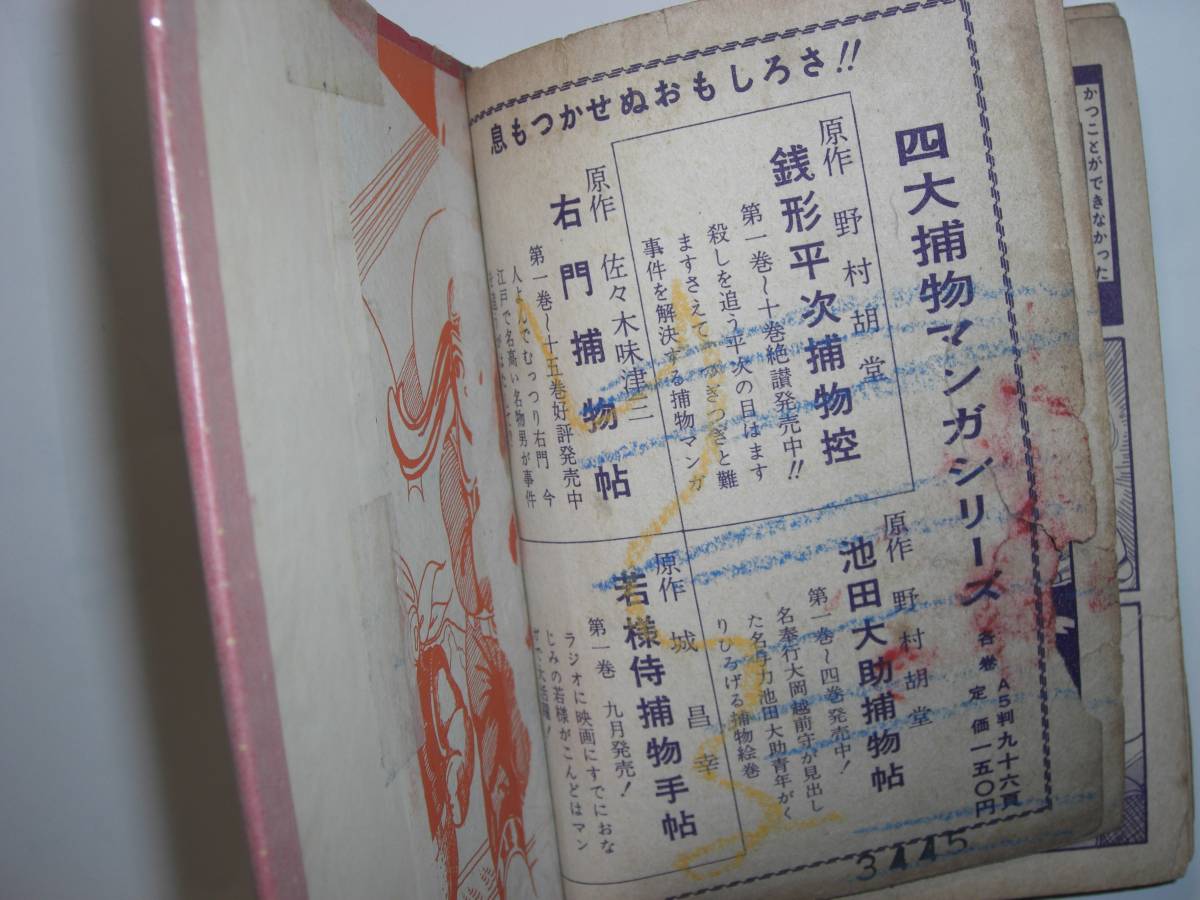 息もつかせぬおもしろさ!!
四大捕物マンガシリーズ
各巻 定価一五〇円
A5判九十六頁
原作 野村胡堂
銭形平次捕物控
第一巻〜十巻絶讃発売中!!
殺しを追う平次の目はます
ますさえて つぎつぎと難
事件を解決する捕物マンガ
原作 野村胡堂
池田大助捕物帖
第一巻〜四巻発売中!
名奉行大岡越前守が見出し
た名与力池田大助青年がく
りひろげる捕物絵巻
原作 佐々木味津三
右門捕物帖
第一巻〜十五巻好評発売中
人よんでむっつり右門 今
江戸で名高い名物男が事件
原作 城昌幸
若様侍捕物手帖
第一巻 九月発売!
ラジオに映画にすでにおな
じみの若様がこんどはマン
ガで大活躍!
3445
かつことができなかった